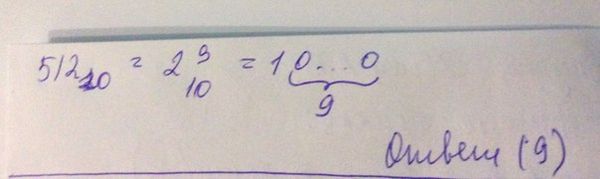 512₁₀ = 2⁹₁₀ = 10...0
9
Ответ (9)